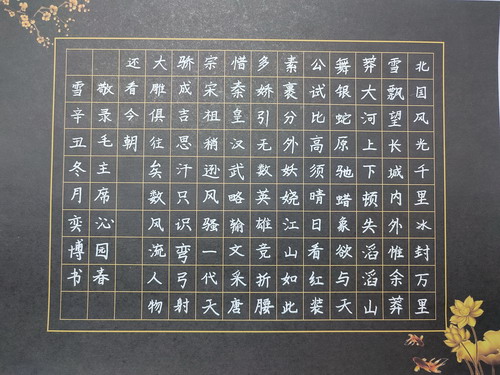 北国风光千里冰封万里
雪飘望长城内外惟余莽
莽大河上下顿失滔滔山
舞银蛇原驰蜡象欲与天
公试比高须晴日看红装
素裹分外妖娆江山如此
多娇引无数英雄竞折腰
惜秦皇汉武略输文采唐
宗宋祖稍逊风骚一代天
骄成吉思汗只识弯弓射
大雕俱往矣数风流人物
还看今朝
敬录毛主席沁园春
雪辛丑冬月奕博书